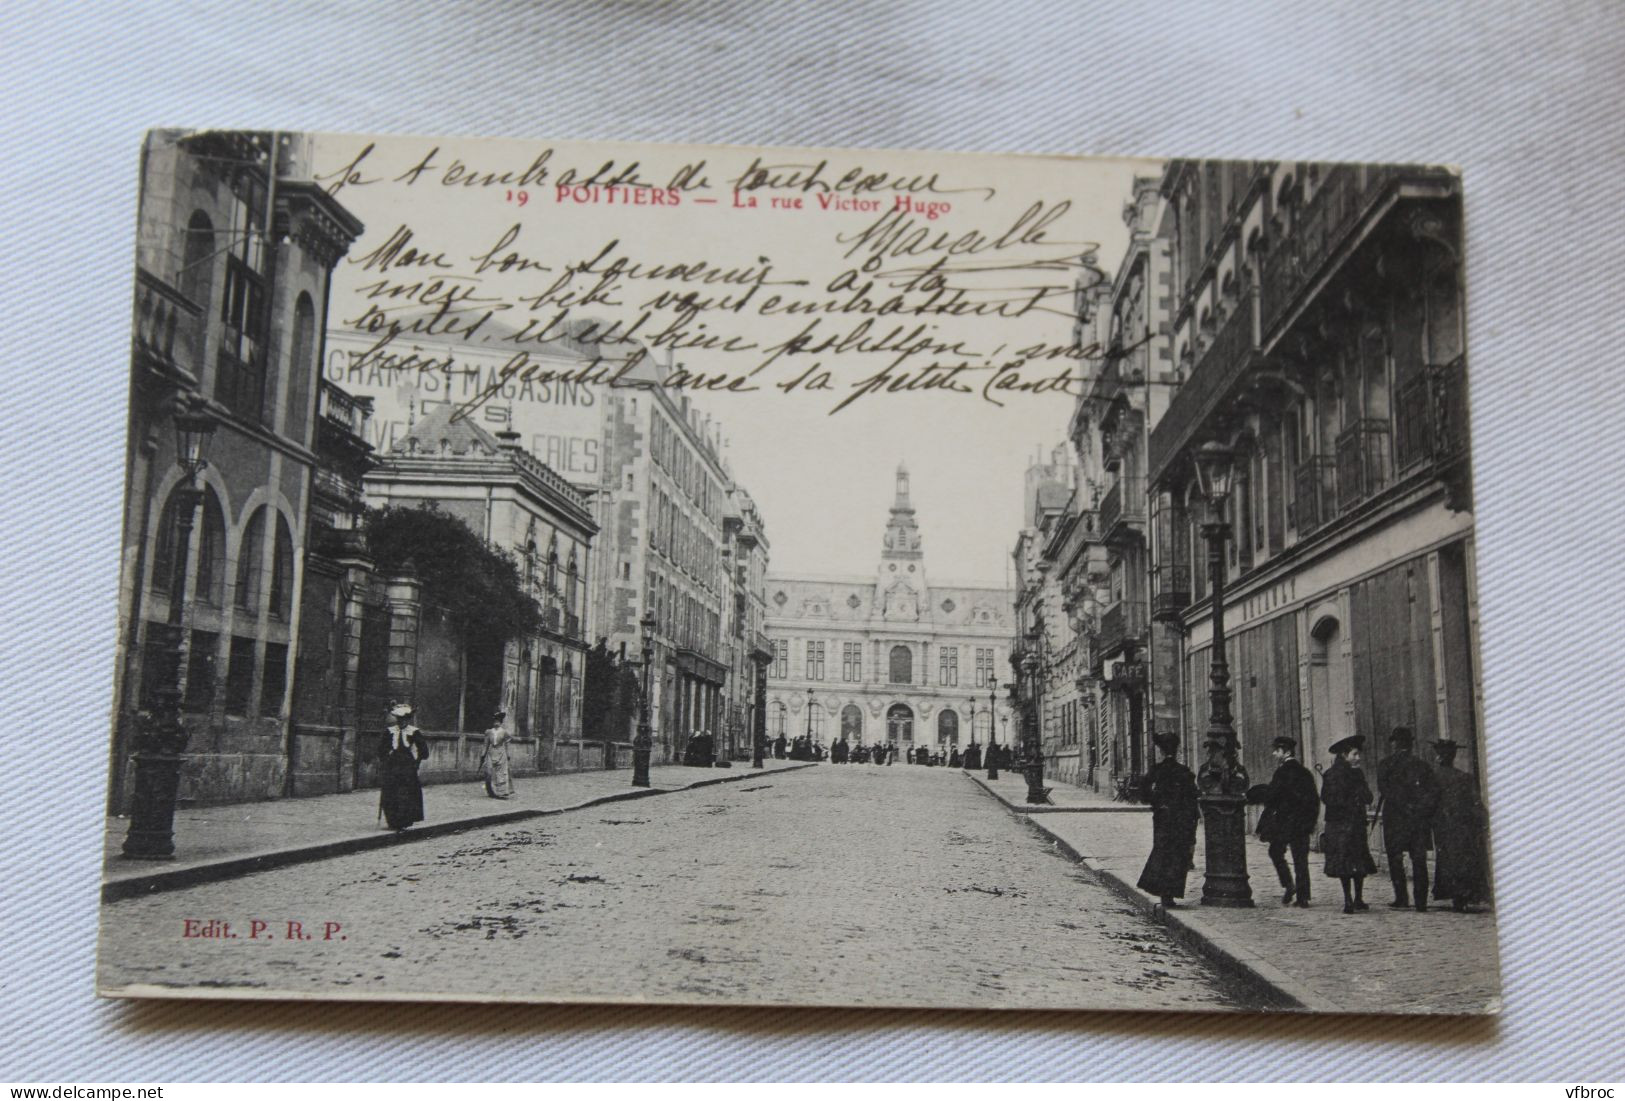 Je t'embrasse de tout cœur
19 POITIERS — La rue Victor Hugo
Marcelle
Mon bon souvenir à ta
mère bébé vous embrassent
toutes, il est bien polisson, mais
bien gentil avec sa petite tante
GRANDS MAGASINS
DES
ERIES
CAFÉ
Edit. P. R. P.
vfbroc